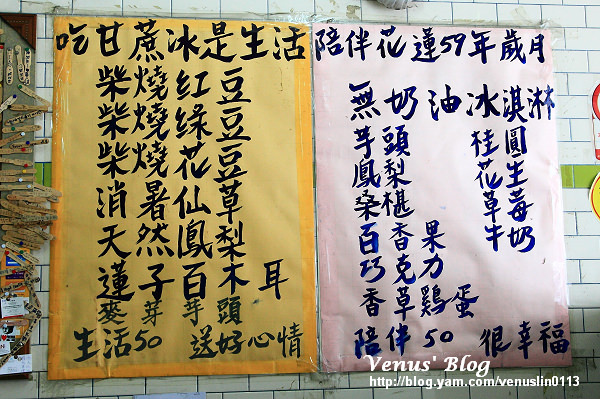 吃甘蔗冰是生活
柴燒紅豆
柴燒綠豆
柴燒花豆
消暑仙草
天然鳳梨
蓮子百木耳
麥芽芋頭
生活50 送好心情
陪伴花蓮59年歲月
無奶油冰淇淋
芋頭 桂圓
鳳梨 花生
桑椹 草莓
百香果 牛奶
巧克力
香草雞蛋
陪伴50 很幸福
Venus' Blog
http://blog.yam.com/venuslin0113